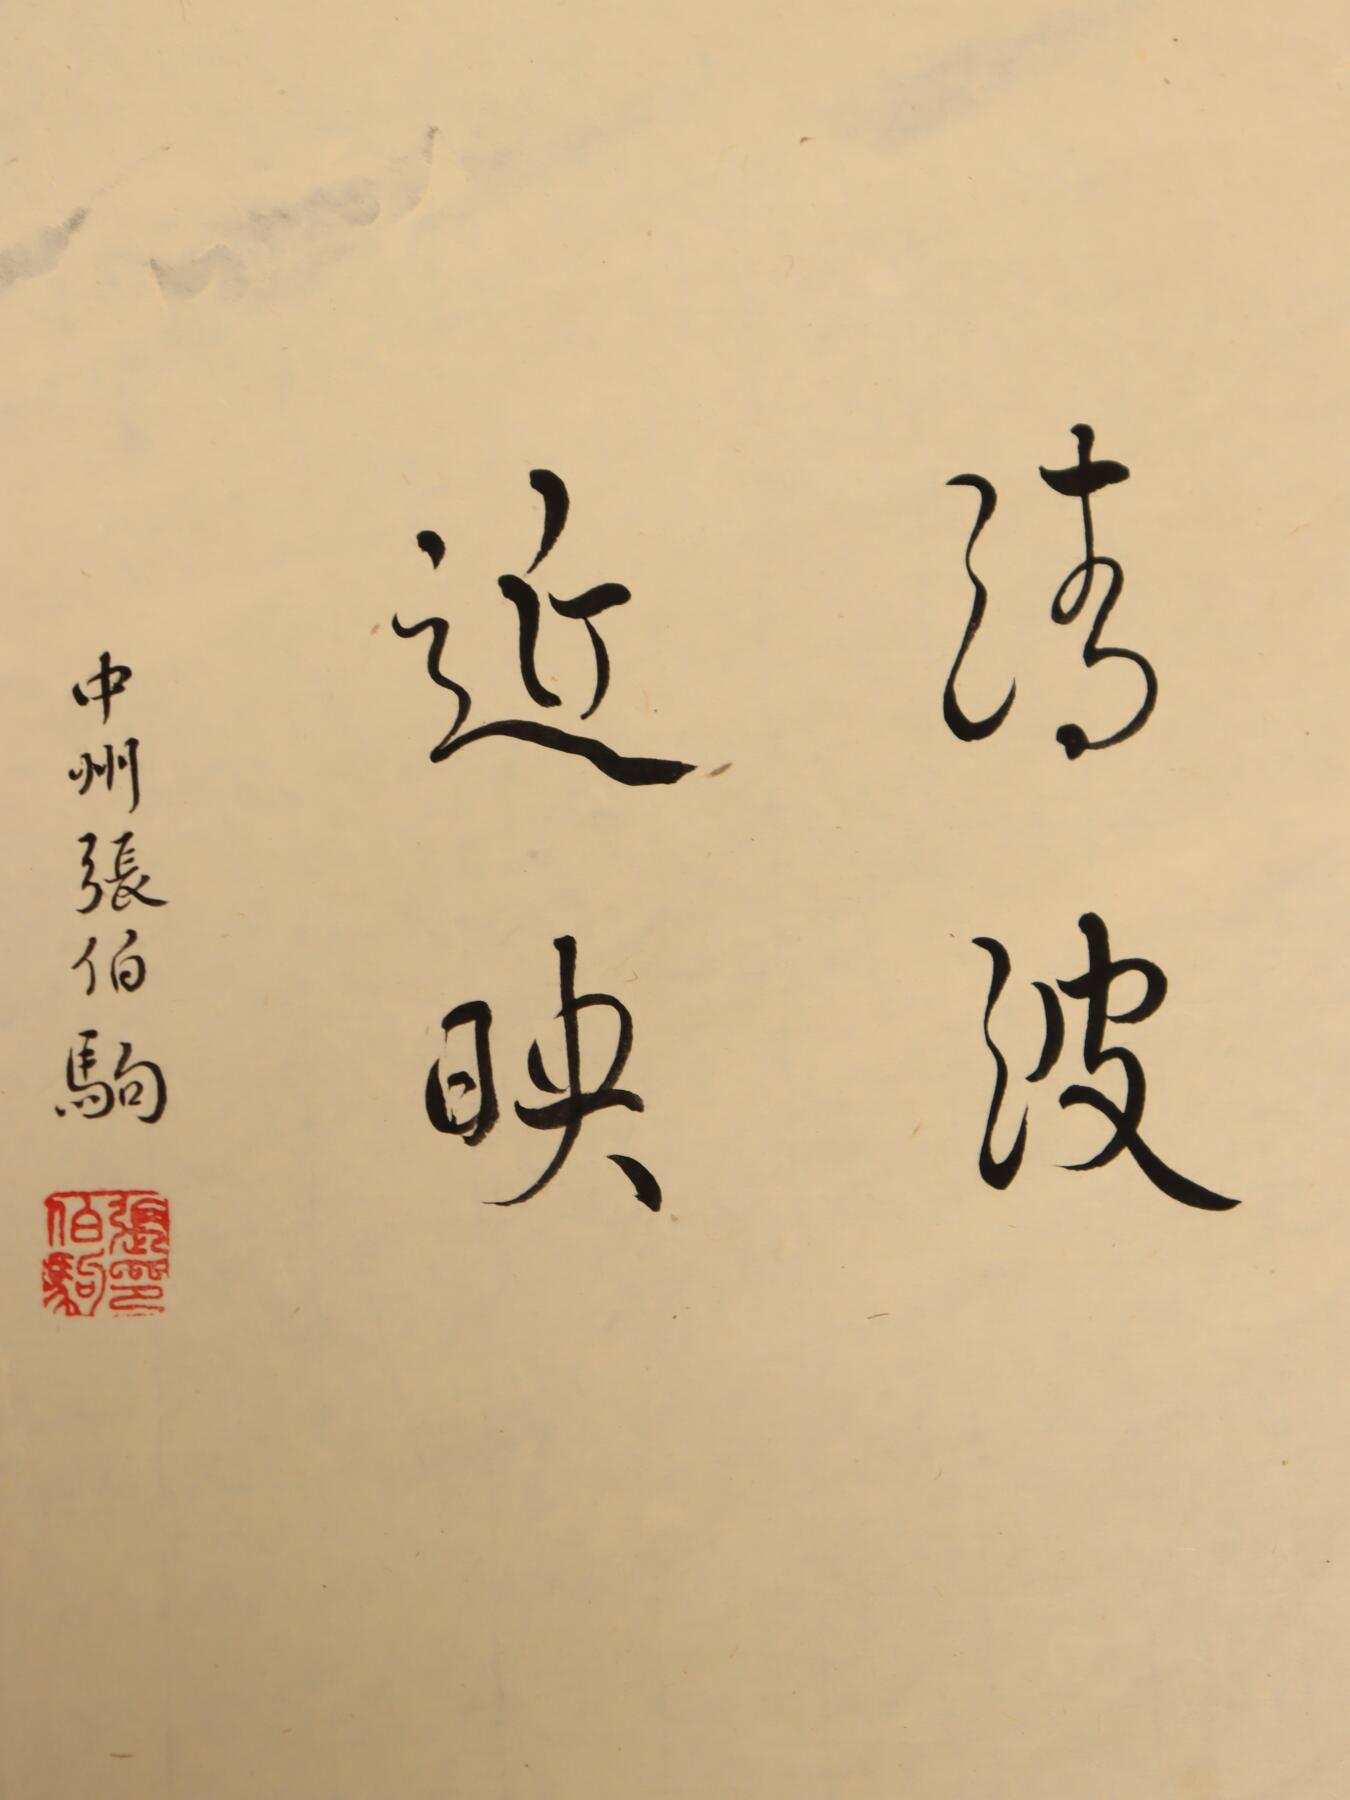 清波
近映
中州張伯駒
張伯駒印